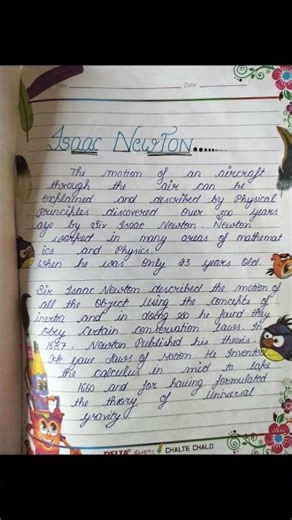 Date
Date
Isaac Newton......
The motion of an aircraft
through the air can be
explained and described by Physical
principles discovered Over 300 years
ago by Sir Isaac Newton. Newton
worked in many areas of mathemat
ics and Physics.
When he was Only 23 years Old.
Sir Isaac Newton described the motion of
all the Object Using the concepts of
inertia and in doing so he found they
Obey Certain conservation laws. In
1687. Newton Published his thesis.
He your laws of Motion. He Invented
the calculus in mid to late
1660 and for having formulated
the theory of Universal
gravity
DELTA
CHALTE CHALO